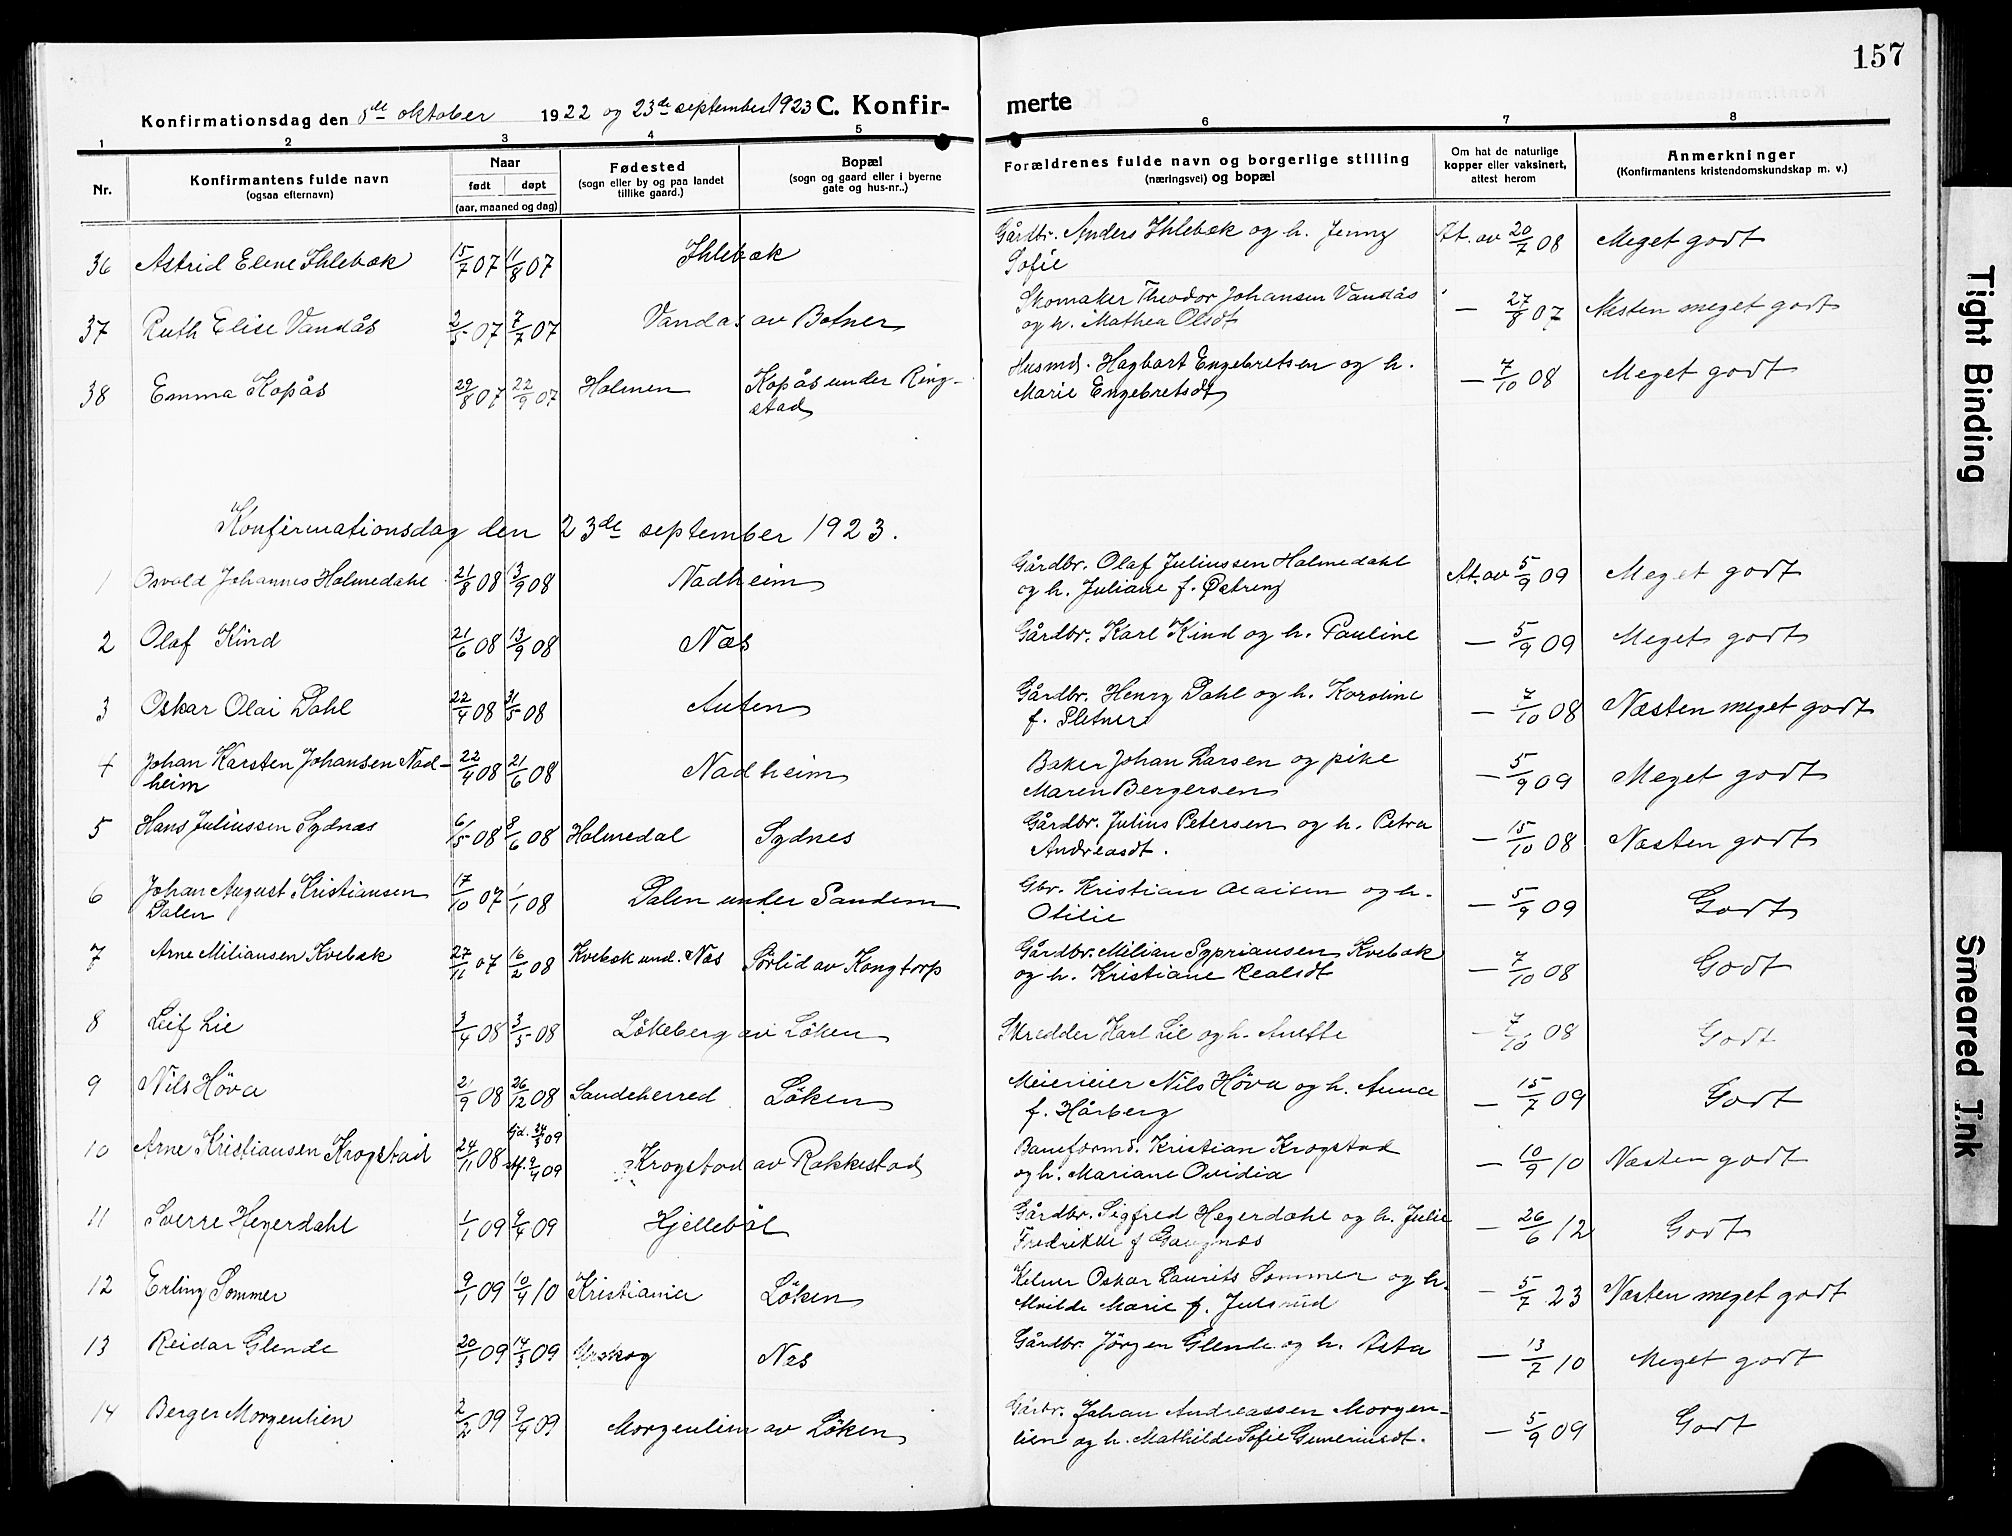 157
Konfirmationsdag den 8de oktober 1922 og 23de september 1923 C. Konfir- merte
1 2 3 4 5 6 7 8
Nr. Konfirmantens fulde navn (ogsaa efternavn) Naar født døpt (aar, maaned og dag) Fødested (sogn eller by og paa landet tillike gaard.) Bopæl (sogn og gaard eller i byerne gate og hus-nr..) Forældrenes fulde navn og borgerlige stilling (næringsvei) og bopæl Om hat de naturlige kopper eller vaksinert, attest herom Anmerkninger (Konfirmantens kristendomskundskap m. v.)
36 Astrid Elene Ihlebæk 15/7 07 11/8 07 Ihlebæk Gårdbr. Anders Ihlebæk og h. Jenny Sofie At. av 20/7 08 Meget godt
37 Ruth Elise Vandås 2/5 07 7/7 07 Vandås av Botner Skomaker Theodor Johansen Vandås og h. Mathea Olsdt — 27/8 07 Næsten meget godt
38 Emma Kopås 29/8 07 22/9 07 Holmen Kopås under Ring-stad Husmd. Hagbart Engebretsen og h. Marie Engebretsdt — 7/10 08 Meget godt
Konfirmationsdag den 23de september 1923.
1 Osvald Johannes Holmedahl 21/8 08 13/9 08 Nadheim Gårdbr. Olaf Juliussen Holmedahl og h. Juliane f. Østreng At. av 5/9 09 Meget godt
2 Olaf Kind 21/6 08 13/9 08 Næs Gårdbr. Karl Kind og h. Pauline — 5/9 09 Meget godt
3 Oskar Olai Dahl 22/4 08 31/5 08 Auten Gårdbr. Henry Dahl og h. Karoline f. Sletner — 7/10 08 Næsten meget godt
4 Johan Karsten Johansen Nad-heim 22/4 08 21/6 08 Nadheim Baker Johan Larsen og pike Maren Bergersen — 5/9 09 Meget godt
5 Hans Juliussen Sydnæs 6/5 08 8/6 08 Holmedal Sydnes Gårdbr. Julius Petersen og h. Petra Andreasdt. — 15/10 08 Næsten godt
6 Johan August Kristiansen Dalen 17/10 07 1/1 08 Dalen under Sandem Gbr. Kristian Olaisen og h. Otilie — 5/9 09 Godt
7 Arne Miliansen Kvebæk 27/11 07 16/2 08 Kvebæk und. Næs Sörlid av Kongtorp Gårdbr. Milian Sypriansen Kvebæk og h. Kristiane — 7/10 08 Godt
8 Leif Lie 3/4 08 3/5 08 Lökeberg av Löken Skredder Karl Lie og h. Anette — 7/10 08 Godt
9 Nils Höva 21/9 08 26/12 08 Sandeherred Löken Meierieier Nils Höva og h. Anna f. Hårberg — 15/7 09 Godt
10 Arne Kristiansen Krogstad 24/11 08 Gd. 24/3 09 Krogstad av Rakkestad Baneformd. Kristian Krogstad og h. Mariane Ovidia — 10/9 10 Næsten godt
11 Sverre Heyerdahl 1/1 09 9/4 09 Kjelleböl Gårdbr. Sigfred Heyerdahl og h. Julie Fredrikke f. Gangnæs — 26/6 12 Godt
12 Erling Sommer 9/1 09 10/4 10 Kristiania Löken Kelner Oskar Laurits Sommer og h. Marie f. Julsrud — 5/7 23 Næsten meget godt
13 Reidar Glende 20/1 09 14/3 09 Urskog Næs Gårdbr. Jörgen Glende og h. Asta — 13/7 10 Meget godt
14 Berger Morgenlien 2/2 09 9/4 09 Morgenlien av Löken Gårbr. Johan Andreassen Morgen-lien og h. Mathilde Sofie Guneriusdt. — 5/9 09 Godt
Tight Binding
Smeared Ink